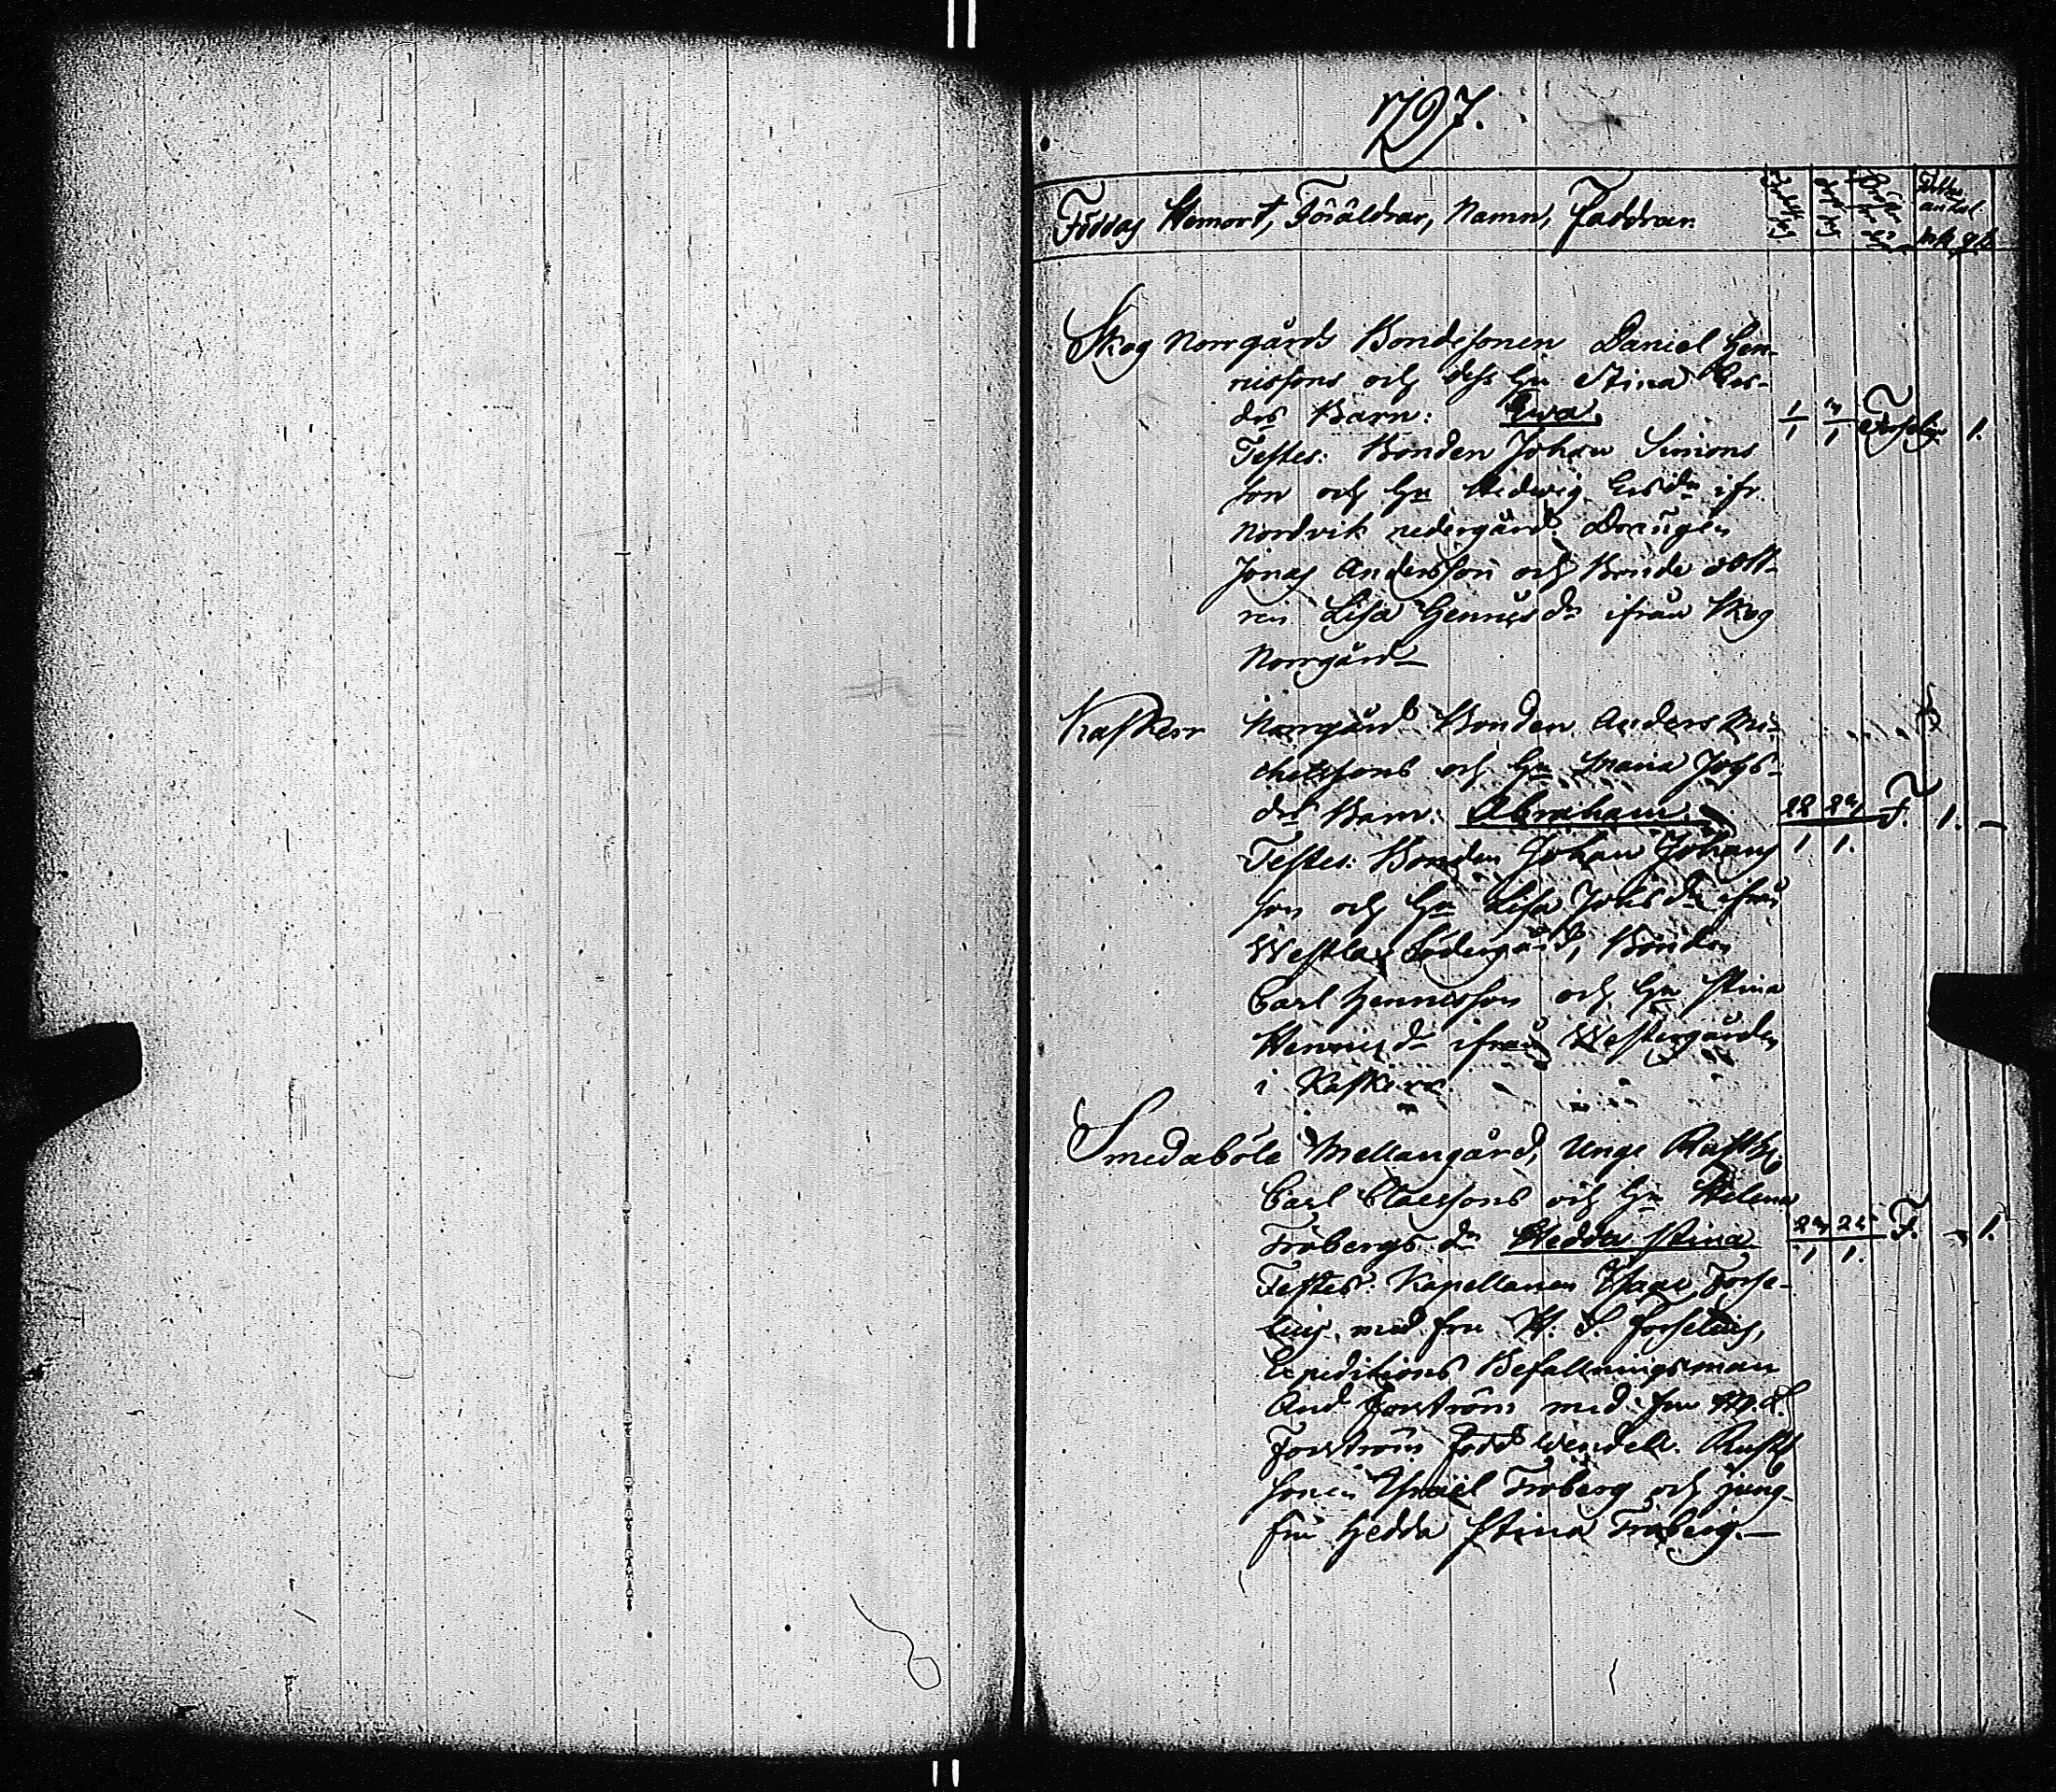 1797.
Föddas Hemort, Föräldrar, Namn, Faddrar.
antal
mk qk
Skog Norrgårds Bondesonen Daniel Hen-
ricssons och dess Hu Stina Ers-
drs Barn: Ewa. 1/1 3/1 Forselius 1.
Testes: Bonden Johan Simons
son och Hu Hedwig Ersdr ifr.
Nordvik nedergård Drängen
Jonas Andersson och Bonde dott-
ren Lisa Henricsdr ifrån Skog
Norrgård
Kasker Norrgård Bonden Anders Mi-
chelssons och Hu Maria Johs-
drs Barn: Abraham. 22/1 24/1. F. 1. -
Testes: Bonden Johan Johans
son och Hu Lisa Johsdr ifrån
Westlax Södergård, Bonden
Carl Henricsson och Hu Stina
Henricsdr ifrån Westergården
i Kasker
Smedaböle Mellangård, Unge Rusth:
Carl Claessons och Hu Helena
Frobergs dr Hedda Stina 24/1 25/1. F. - 1.
Testes: Kapellanen Isaac Forse-
lius med fru H. S. Forselius,
Expeditions Befallningsman
And Forström med fru M. L.
Forström född Wendell. Rusth
sonen Israël Froberg och jung-
fru Hedda Stina Froberg.—